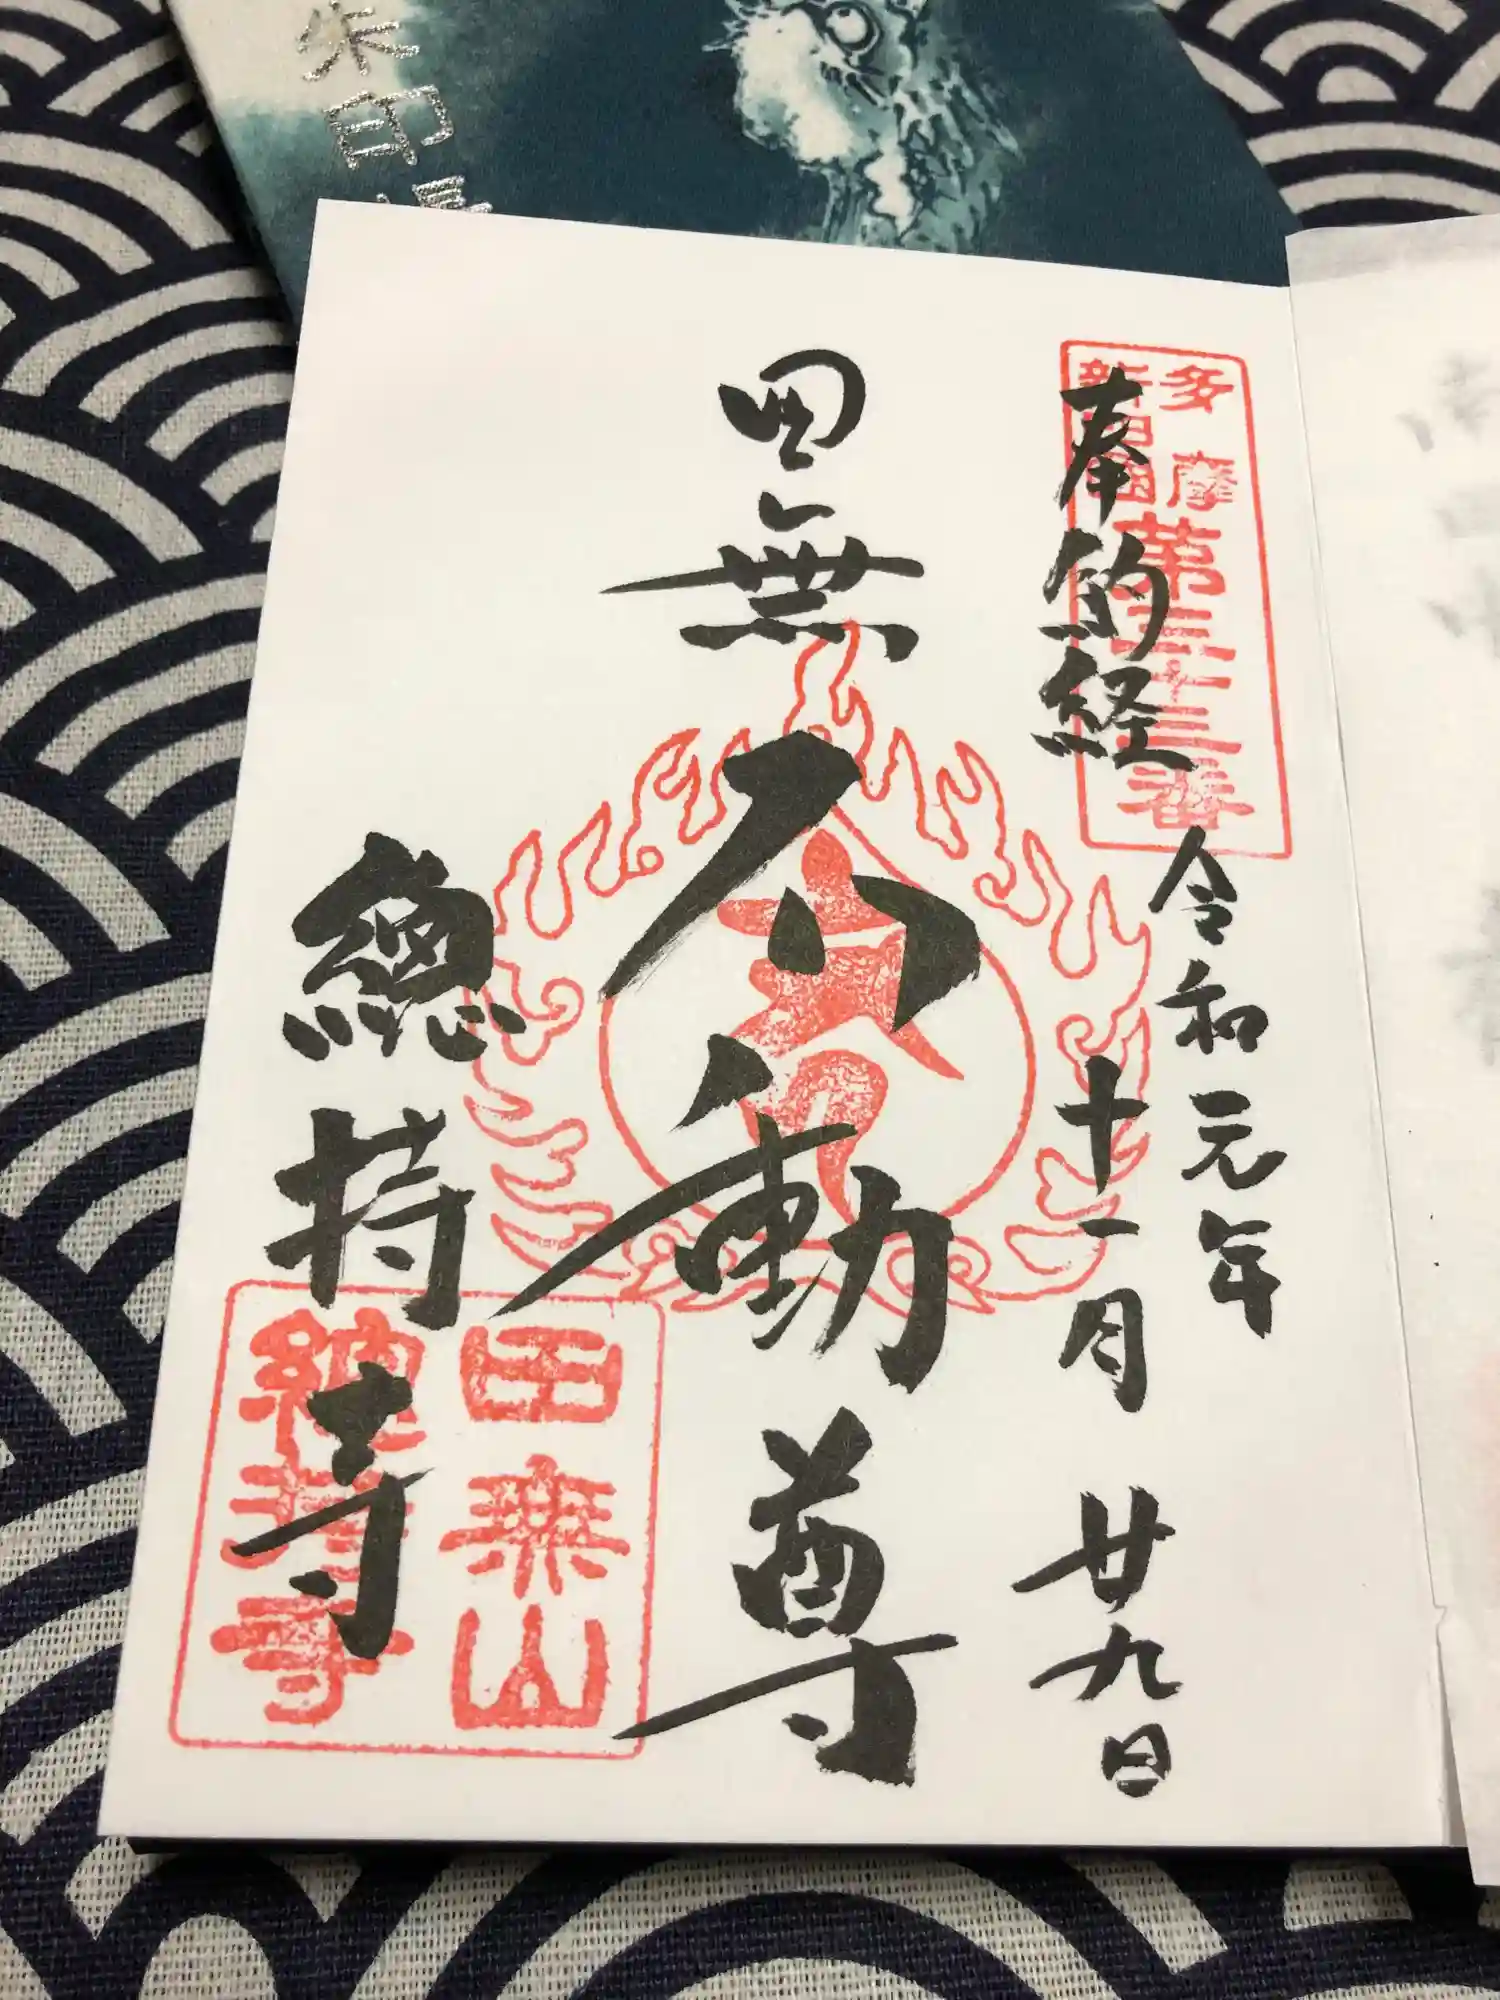 朱印
多摩
新四国
第三十三番
奉納経
令和元年
十一月廿九日
田無
不動尊
總持寺
田無山
總持寺